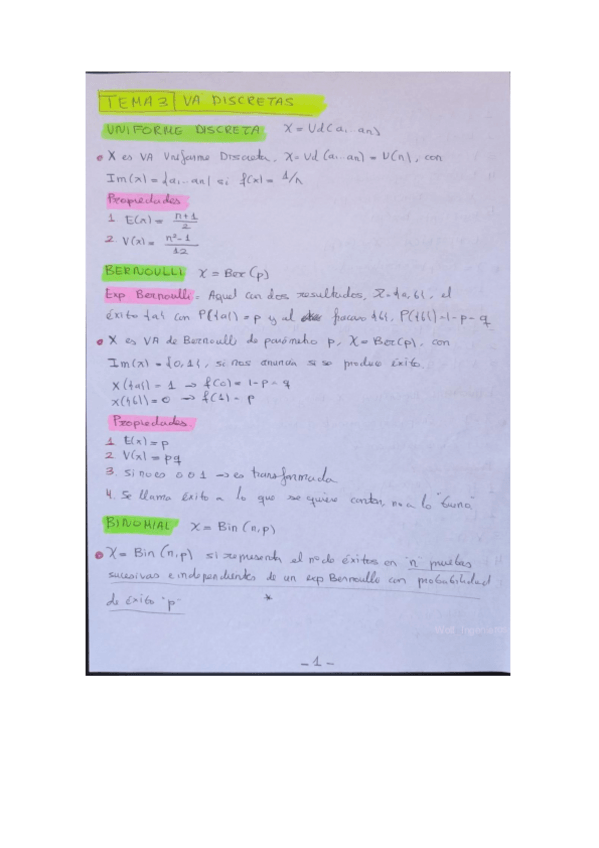 TEMA 3 VA DISCRETAS
UNIFORME DISCRETA X = Ud(a,...an)
X es VA Uniforme Discreta, X=Ud(a,...an) = U(n), con
Im(x) = {a,...an} si f(x) = 1/n
Propiedades
1. E(n) = n+1/2
2. V(x) = n²-1/12
BERNOULLI X = Ber(p)
Exp Bernoulli = Aquel con dos resultados, X={a,b}, el
éxito {a} con P({a}) = p y al fracaso {b}, P({b})=1-p=q
X es VA de Bernoulli de parámetro p, X = Ber(p), con
Im(x) = {0,1}, si nos anuncia si se produce éxito.
X({a}) = 1 → f(0) = 1-p = q
X({b}) = 0 → f(1) = p
Propiedades.
1. E(x) = p
2. V(x) = pq
3. Si no es 0 o 1 → es transformada
4. Se llama éxito a lo que se quiere contar, no a lo "bueno".
BINOMIAL X = Bin(n,p)
X = Bin(n,p) si representa el nº de éxitos en "n" pruebas
sucesivas e independientes de un exp Bernoulli con probabilidad
de éxito "p"
- 1 -